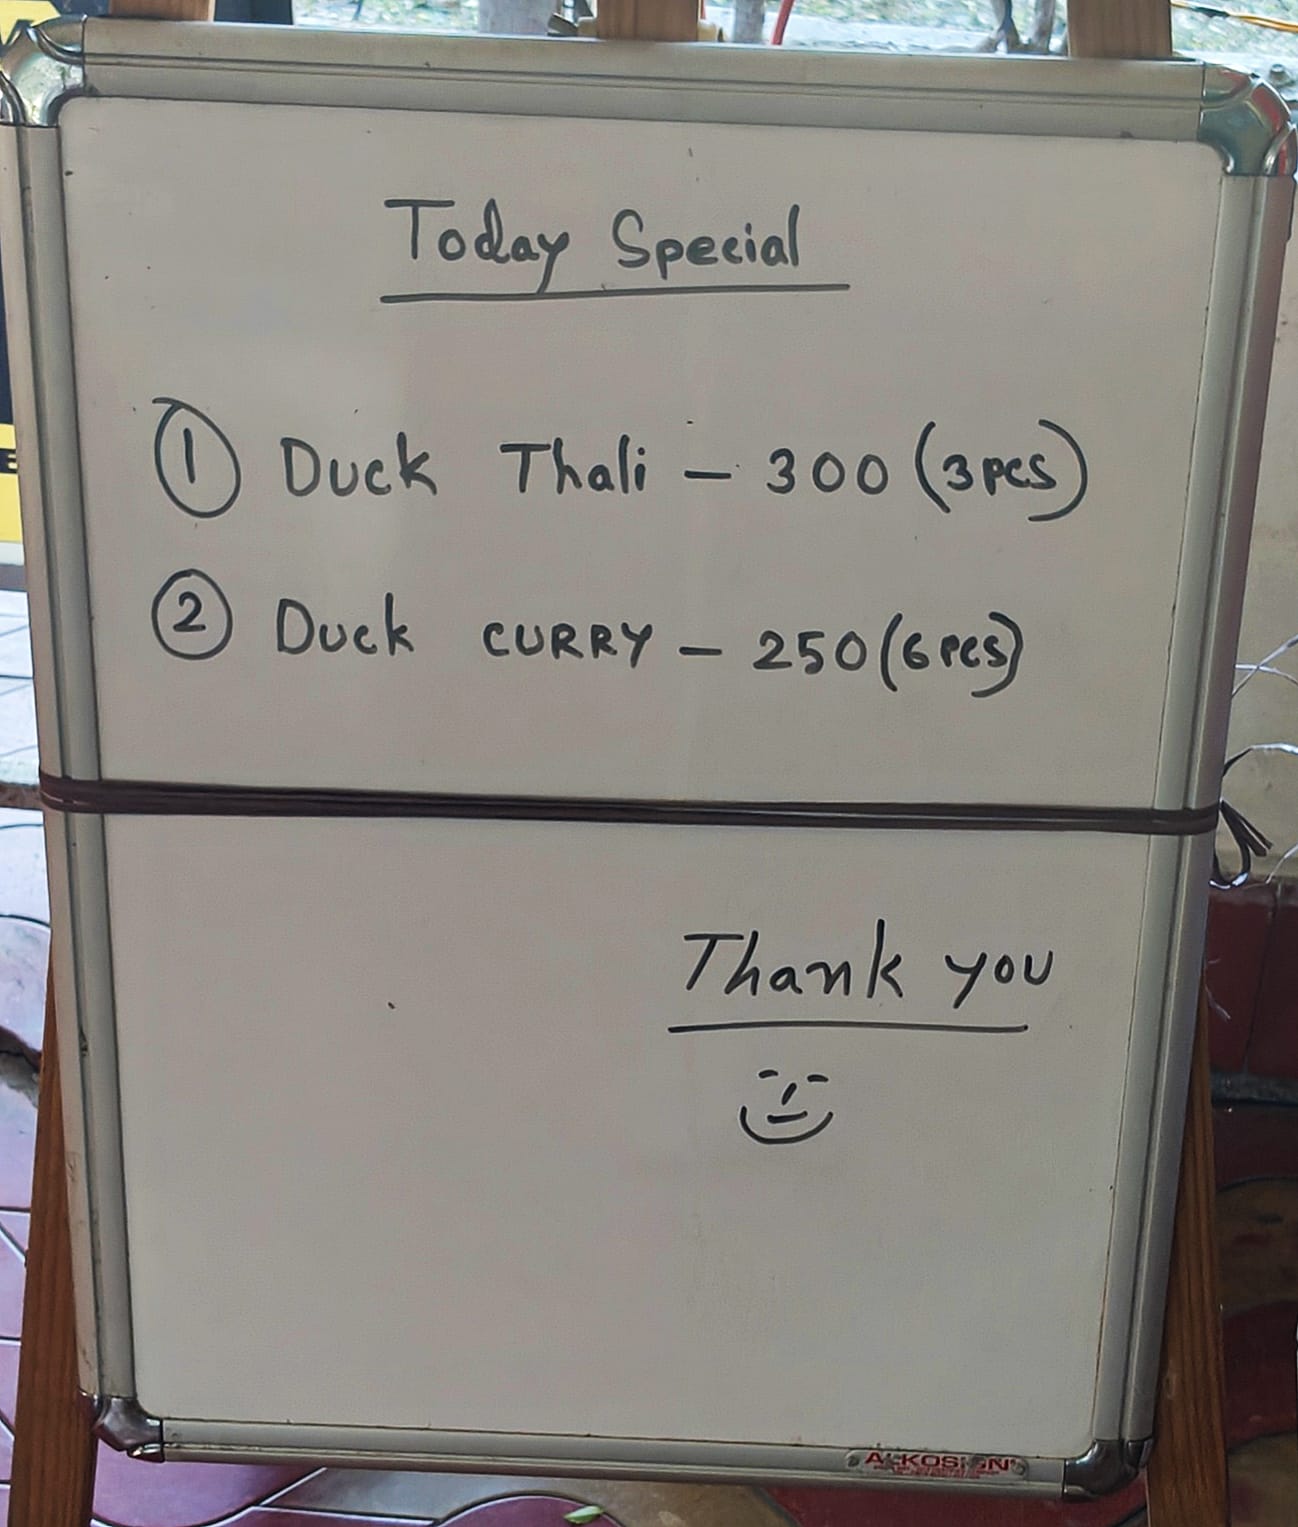 Today Special
① Duck Thali - 300 (3 pcs)
② Duck CURRY - 250 (6 pcs)
Thank you
ALKOSIGN